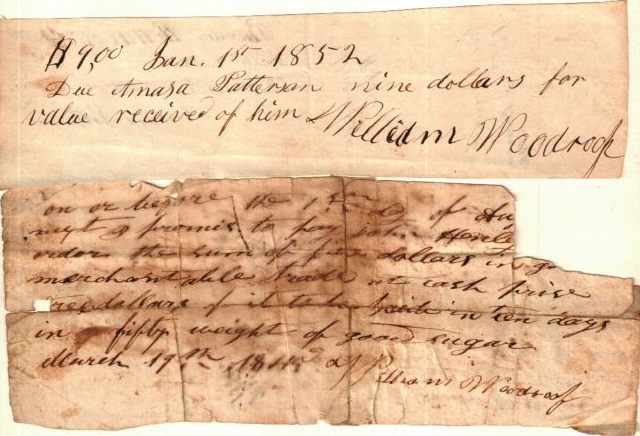 $9,00 Jan. 1st 1852
Due Amasa Patterson nine dollars for
value received of him William Woodroof
on or before the 1st day of Au
next I promis to pay John Henle
order the sum of five dollars in
merchantable trade at cash price
dollars of it to be paid in ten days
in fifty weight of good sugar
March 19th Woodroof